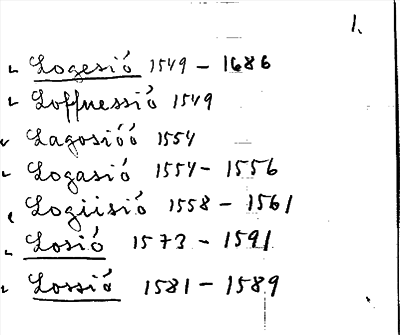 1.
Logesió 1549 – 1686
Loffnessió 1549
Lagosióó 1554
Logasió 1554 – 1556
Logiisió 1558 – 1561
Losió 1573 – 1591
Lossió 1581 – 1589